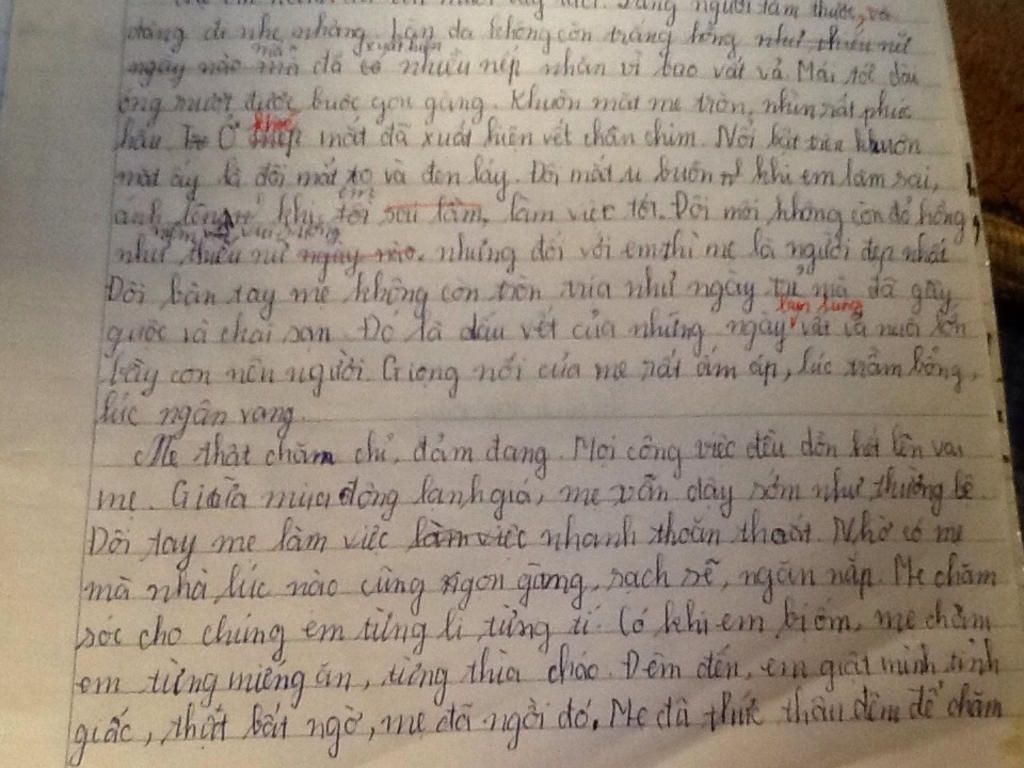 Dáng người tầm thước, và
dáng đi nhẹ nhàng. Làn da không còn trắng hồng như thiếu nữ
mà xuất hiện
ngày nào mà đã có nhiều nếp nhăn vì bao vất vả. Mái tóc dài
óng mượt được buộc gọn gàng. Khuôn mặt mẹ tròn, nhìn rất phúc
khoé
hậu. Ở mép mắt đã xuất hiện vết chân chim. Nổi bật trên khuôn
mặt ấy là đôi mắt to và đen láy. Đôi mắt u buồn khi em làm sai,
em
ánh lên khi tôi sai lầm, làm việc tốt. Đôi môi không còn đỏ hồng,
niềm vui
như thiếu nữ ngày nào. nhưng đối với em thì mẹ là người đẹp nhất
Đôi bàn tay mẹ không còn tròn trịa như ngày mà đã gầy
lam lũng
guộc và chai sạn. Đó là dấu vết của những ngày vất vả nuôi lớn
bầy con nên người. Giọng nói của mẹ rất ấm áp, lúc trầm bổng,
lúc ngân vang.
Mẹ thật chăm chỉ, đảm đang. Mọi công việc đều dồn hết lên vai
mẹ. Giữa mùa đông lạnh giá, mẹ vẫn dậy sớm như thường lệ.
Đôi tay mẹ làm việc làm việc nhanh thoăn thoắt. Nhờ có mẹ
mà nhà lúc nào cũng gọn gàng, sạch sẽ, ngăn nắp. Mẹ chăm
sóc cho chúng em từng li từng tí. Có khi em bị ốm, mẹ chăm
em từng miếng ăn, từng thìa cháo. Đêm đến, em giật mình tỉnh
giấc, thật bất ngờ, mẹ đã ngồi đó. Mẹ đã thức thâu đêm để chăm